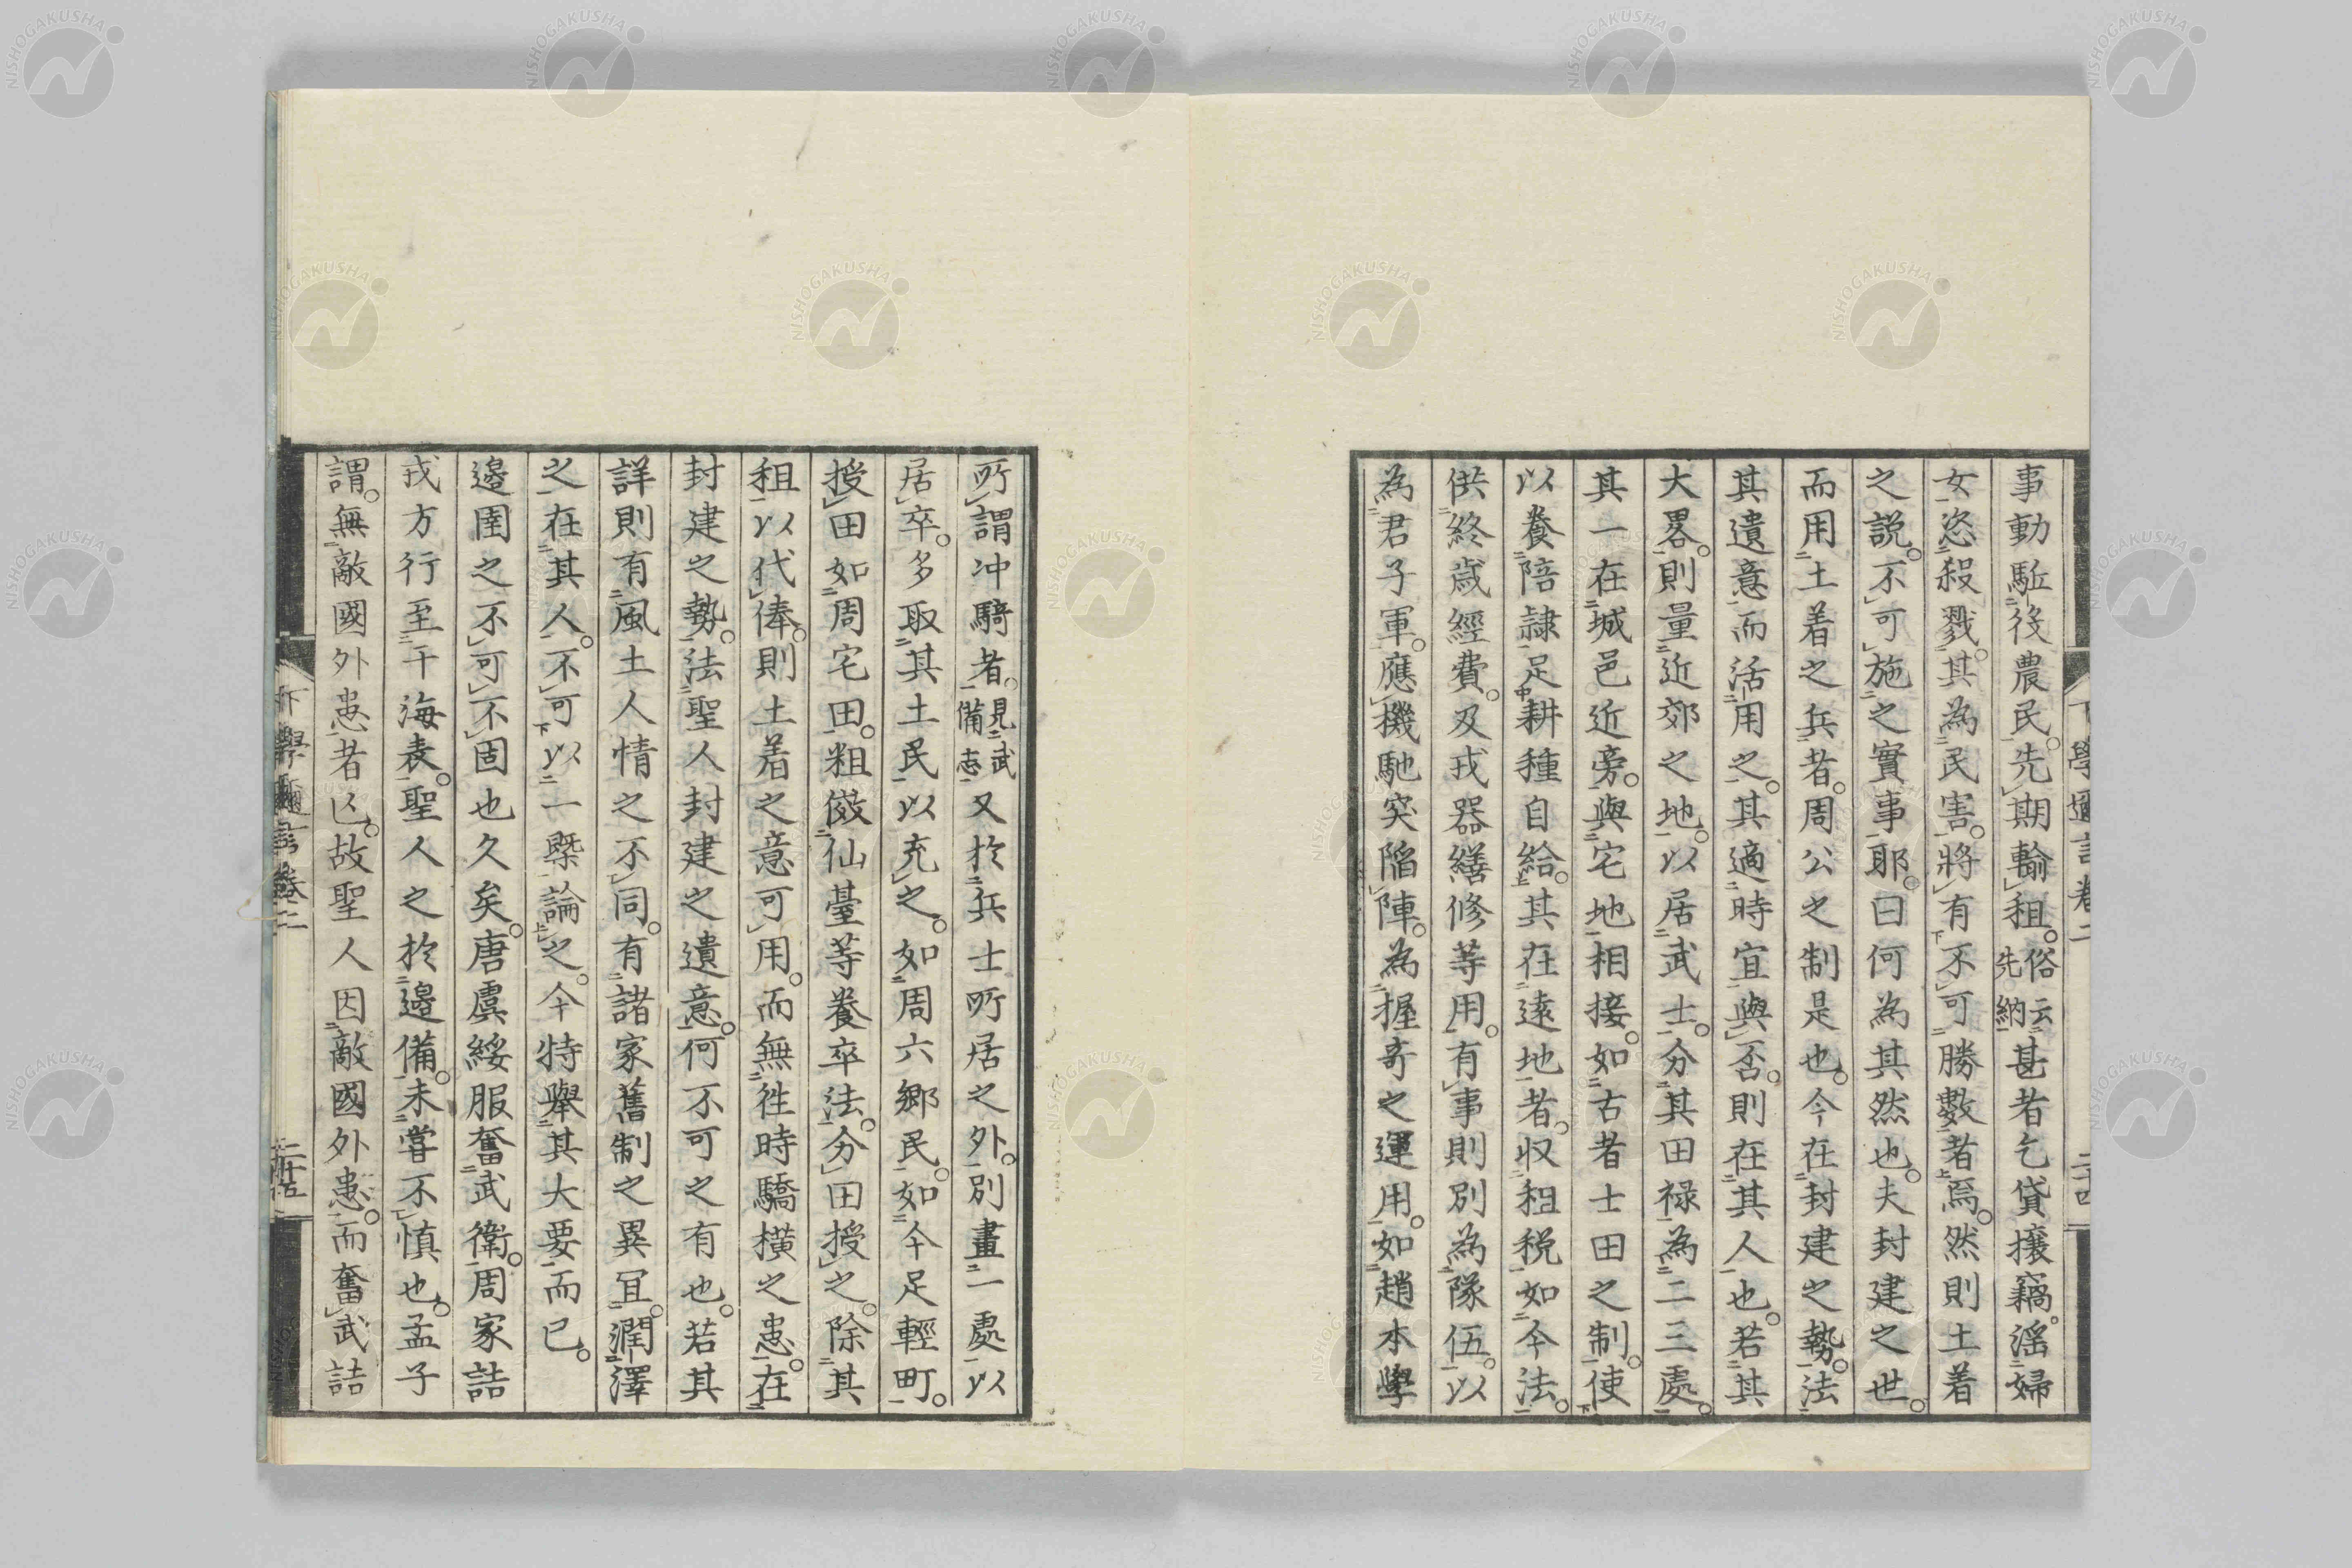 事動駈役農民。先期輸租。俗云先納甚者乞貸攘竊。滛婦
女恣殺戮。其為民害。將有不可勝數者焉。然則土着
之説。不可施之實事耶。曰何為其然也。夫封建之世。
而用土着之兵者。周公之制是也。今在封建之勢。法
其遺意而活用之。其適時宜與否。則在其人也。若其
大畧。則量近郊之地。以居武士。分其田禄為二三處。
其一在城邑近旁。與宅地相接。如古者士田之制。使
以養陪隷足耕種自給。其在遠地者。収租税如今法。
供終歳經費。及戎器繕修等用。有事則別為隊伍。以
為君子軍。應機馳突陷陣。為握奇之運用。如趙本學
下學邇言卷二
二十四
所謂冲騎者。見武備志又於兵士所居之外。別畫一處以
居卒。多取其土民以充之。如周六郷民。如今足輕町。
授田如周宅田。粗倣仙臺等養卒法。分田授之。除其
租以代俸。則土着之意可用。而無徃時驕橫之患。在
封建之勢。法聖人封建之遺意。何不可之有也。若其
詳則有風土人情之不同。有諸家舊制之異宜。潤澤
之在其人。不可以一槩論之。今特舉其大要而已。
邊圉之不可不固也久矣。唐虞綏服奮武衛。周家詰
戎方行至于海表。聖人之於邊備。未嘗不慎也。孟子
謂。無敵國外患者亡。故聖人因敵國外患。而奮武詰
下學邇言卷二
二十五
NISHOGAKUSHA